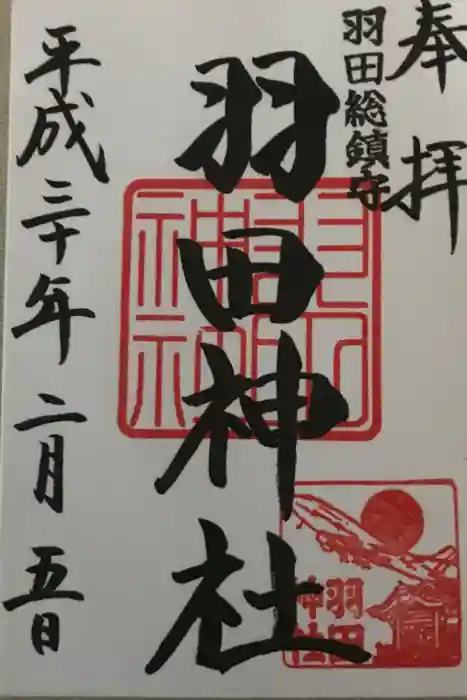 奉拝
羽田総鎮守
羽田神社
平成三十年二月五日
羽田
神社